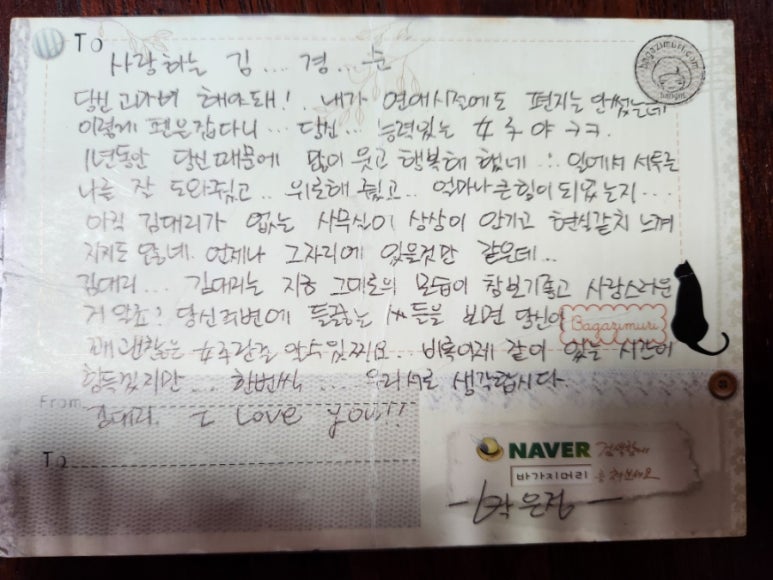 To
사랑하는 김... 경... 순
당신 고마워 해야돼! .. 내가 연애시절에도 편지는 안썼는데
이렇게 편은잡다니... 당신... 능력있는 女구야 ㅋㅋ.
1년동안 당신때문에 많이 웃고 행복해 했네.. 일에서 서투른
나를 잘 도와줬고.. 위로해 줬고.. 얼마나 큰힘이 되었는지...
아직 김대리가 없는 사무실이 상상이 안가고 현실같치 느껴
지지도 않네. 언제나 그자리에 있을것만 같은데...
김대리... 김대리는 지금 그대로의 모습이 참보기좋고 사랑스러운
거 알죠? 당신주변에 들끓는 들을 보면 당신이
꽤 괜찮은 女구란걸 알수있찌요.. 비록이제 같이 있는 시간이
힘득겠지만... 한번씩... 우리서로 생각합시다
김대리. I Love you!!
From
To
bagazimuri.com
Bagazimuri
NAVER 검색창에
바가지머리 를 쳐보세요
- 은정 -